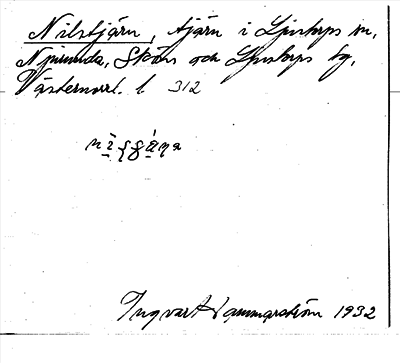 Nilstjärn, tjärn i Ljustorps sn,
Njurunda, Sköns och Ljustorps tg,
Västernorrl. l 312
Ingvar Hammarström 1932